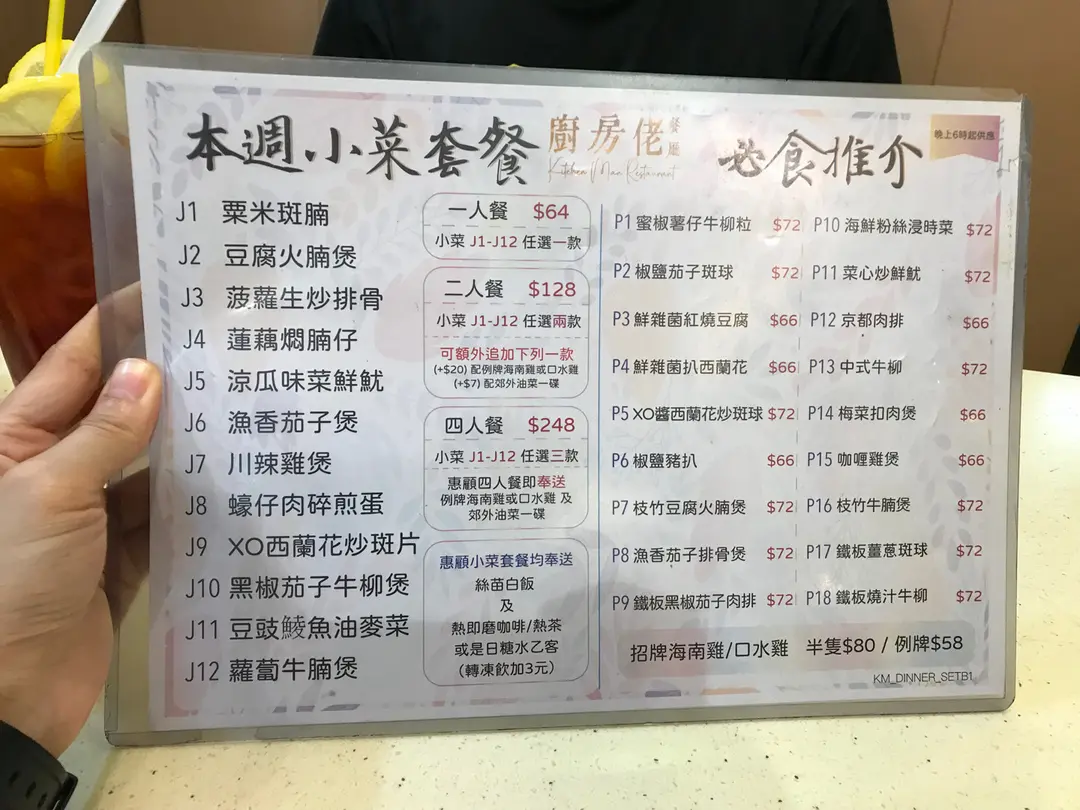 本週小菜套餐
廚房佬餐廳
Kitchen Man Restaurant
必食推介
晚上6時起供應
J1 粟米斑腩
J2 豆腐火腩煲
J3 菠蘿生炒排骨
J4 蓮藕燜腩仔
J5 涼瓜味菜鮮魷
J6 漁香茄子煲
J7 川辣雞煲
J8 蠔仔肉碎煎蛋
J9 XO西蘭花炒斑片
J10 黑椒茄子牛柳煲
J11 豆豉鯪魚油麥菜
J12 蘿蔔牛腩煲
一人餐 $64
小菜 J1-J12 任選一款
二人餐 $128
小菜 J1-J12 任選兩款
可額外追加下列一款
(+$20) 配例牌海南雞或口水雞
(+$7) 配郊外油菜一碟
四人餐 $248
小菜 J1-J12 任選三款
惠顧四人餐即奉送
例牌海南雞或口水雞 及
郊外油菜一碟
惠顧小菜套餐均奉送
絲苗白飯
及
熱即磨咖啡/熱茶
或是日糖水乙客
（轉凍飲加3元）
P1 蜜椒薯仔牛柳粒 $72
P2 椒鹽茄子斑球 $72
P3 鮮雜菌紅燒豆腐 $66
P4 鮮雜菌扒西蘭花 $66
P5 XO醬西蘭花炒斑球 $72
P6 椒鹽豬扒 $66
P7 枝竹豆腐火腩煲 $72
P8 漁香茄子排骨煲 $72
P9 鐵板黑椒茄子肉排 $72
P10 海鮮粉絲浸時菜 $72
P11 菜心炒鮮魷 $72
P12 京都肉排 $66
P13 中式牛柳 $72
P14 梅菜扣肉煲 $66
P15 咖喱雞煲 $66
P16 枝竹牛腩煲 $72
P17 鐵板薑蔥斑球 $72
P18 鐵板燒汁牛柳 $72
招牌海南雞/口水雞 半隻$80 / 例牌$58
KM_DINNER_SETB1